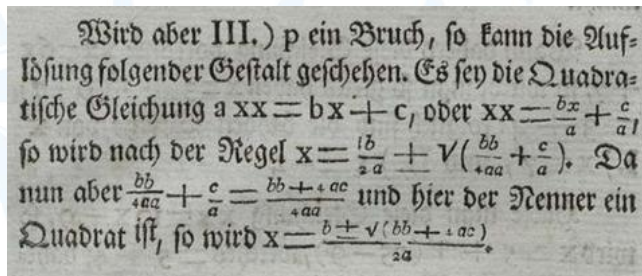 Wird aber III.) p ein Bruch, so kann die Auf=
lösung folgender Gestalt geschehen. Es sey die Quadra=
tische Gleichung a xx = bx + c, oder xx = bx/a + c/a,
so wird nach der Regel x = 1b/2a ± √(bb/4aa + c/a). Da
nun aber bb/4aa + c/a = bb + 4ac/4aa und hier der Nenner ein
Quadrat ist, so wird x = b ± √(bb + 4ac)/2a.